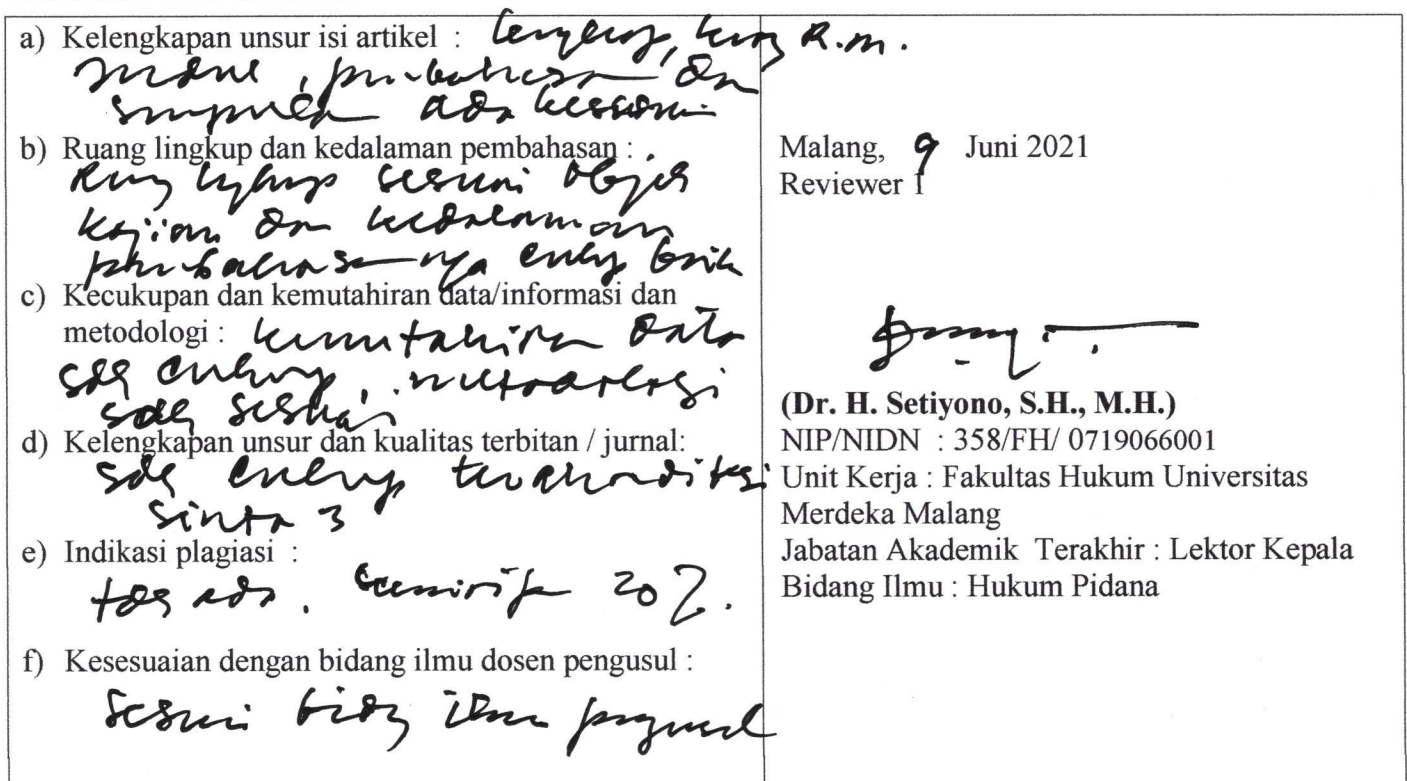 a) Kelengkapan unsur isi artikel : lengkap, R.m.
dan
simpulan ada kesesuaian
b) Ruang lingkup dan kedalaman pembahasan :
Ruang lingkup sesuai objek
kajian dan kedalaman
pembahasannya cukup baik
c) Kecukupan dan kemutahiran data/informasi dan
metodologi : kemutahiran data
sdg cukup, metodologi
sdg sesuai
d) Kelengkapan unsur dan kualitas terbitan / jurnal:
sdg cukup terakreditasi
sinta 3
e) Indikasi plagiasi :
tdg ada. 20%.
f) Kesesuaian dengan bidang ilmu dosen pengusul :
sesuai bidg ilmu pengusul
Malang, 9 Juni 2021
Reviewer 1
(Dr. H. Setiyono, S.H., M.H.)
NIP/NIDN : 358/FH/ 0719066001
Unit Kerja : Fakultas Hukum Universitas
Merdeka Malang
Jabatan Akademik Terakhir : Lektor Kepala
Bidang Ilmu : Hukum Pidana